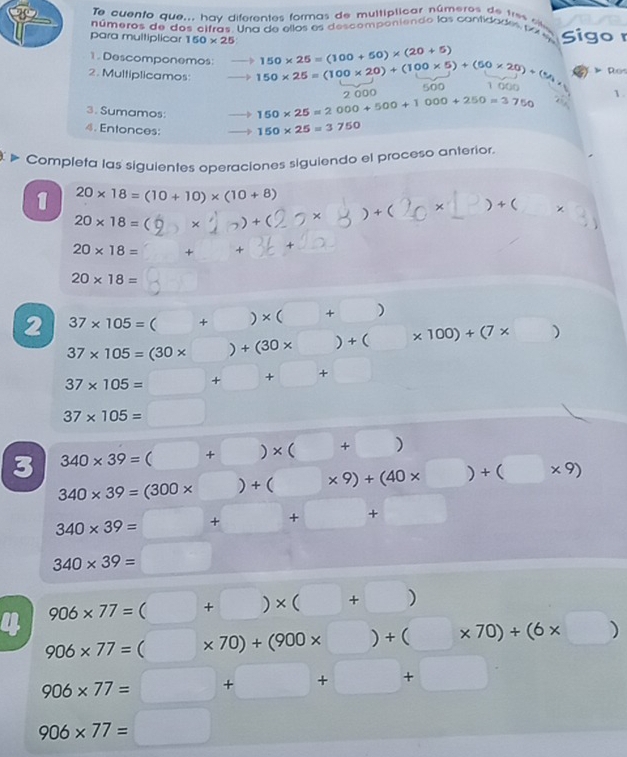 Te cuento que... hay diferentes formas de multiplicar números de tres cifras
números de dos cifras. Una de ellas es descomponiendo las cantidades, por
para multiplicar 150 × 25:
Sigo r
1. Descomponemos: → 150 × 25 = (100 + 50) × (20 + 5)
2. Multiplicamos: → 150 × 25 = (100 × 20) + (100 × 5) + (50 × 20) + (50 ×
2 000 500 1 000
3. Sumamos: → 150 × 25 = 2 000 + 500 + 1 000 + 250 = 3 750
4. Entonces: → 150 × 25 = 3 750
1.
▶ Completa las siguientes operaciones siguiendo el proceso anterior.
1 20 × 18 = (10 + 10) × (10 + 8)
20 × 18 = ( × ) + (20 × 8 ) + ( 20 × 18 ) + ( × )
20 × 18 = + + +
20 × 18 = 8
2 37 × 105 = ( + ) × ( + )
37 × 105 = (30 × ) + (30 × ) + ( × 100) + (7 × )
37 × 105 = + + +
37 × 105 =
3 340 × 39 = ( + ) × ( + )
340 × 39 = (300 × ) + ( × 9) + (40 × ) + ( × 9)
340 × 39 = + + +
340 × 39 =
4 906 × 77 = ( + ) × ( + )
906 × 77 = ( × 70) + (900 × ) + ( × 70) + (6 × )
906 × 77 = + + +
906 × 77 =